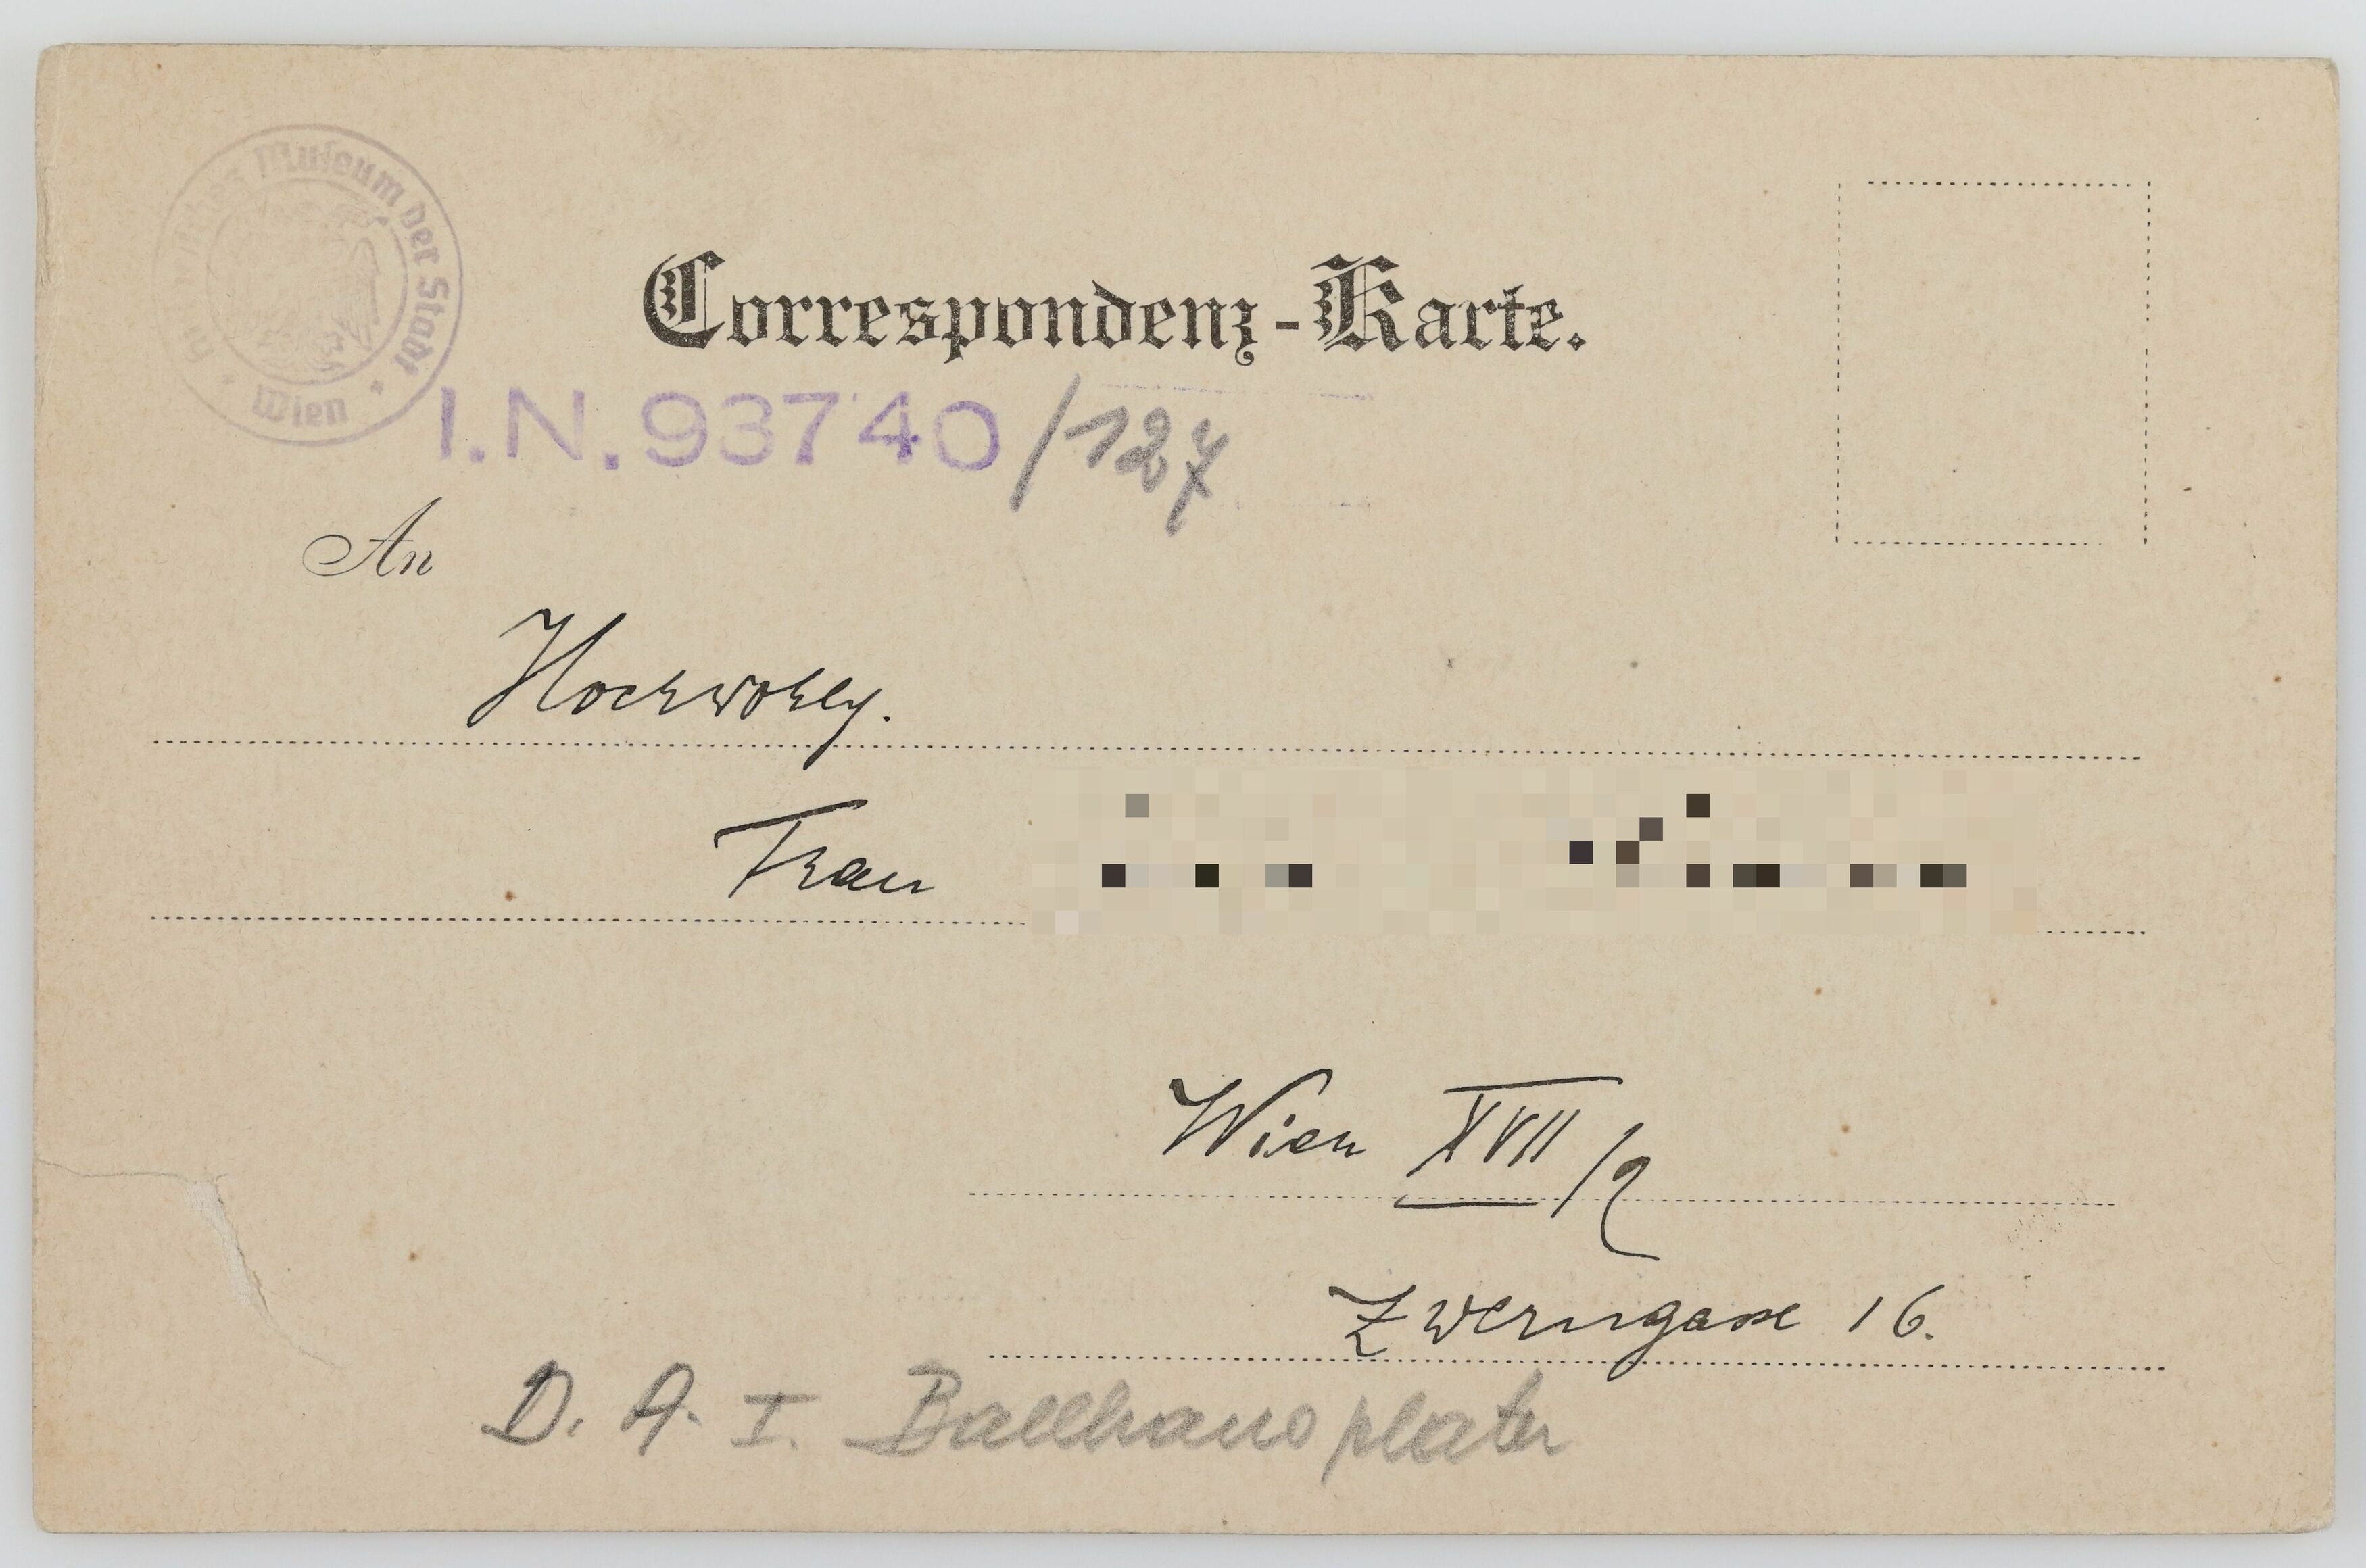 Museum der Stadt
* Wien *
Correspondenz-Karte.
I.N. 93740/127
An
Hochwohlg.
Frau
Wien XVII/2
Zwerngasse 16.
D. A. I. Ballhausplatz